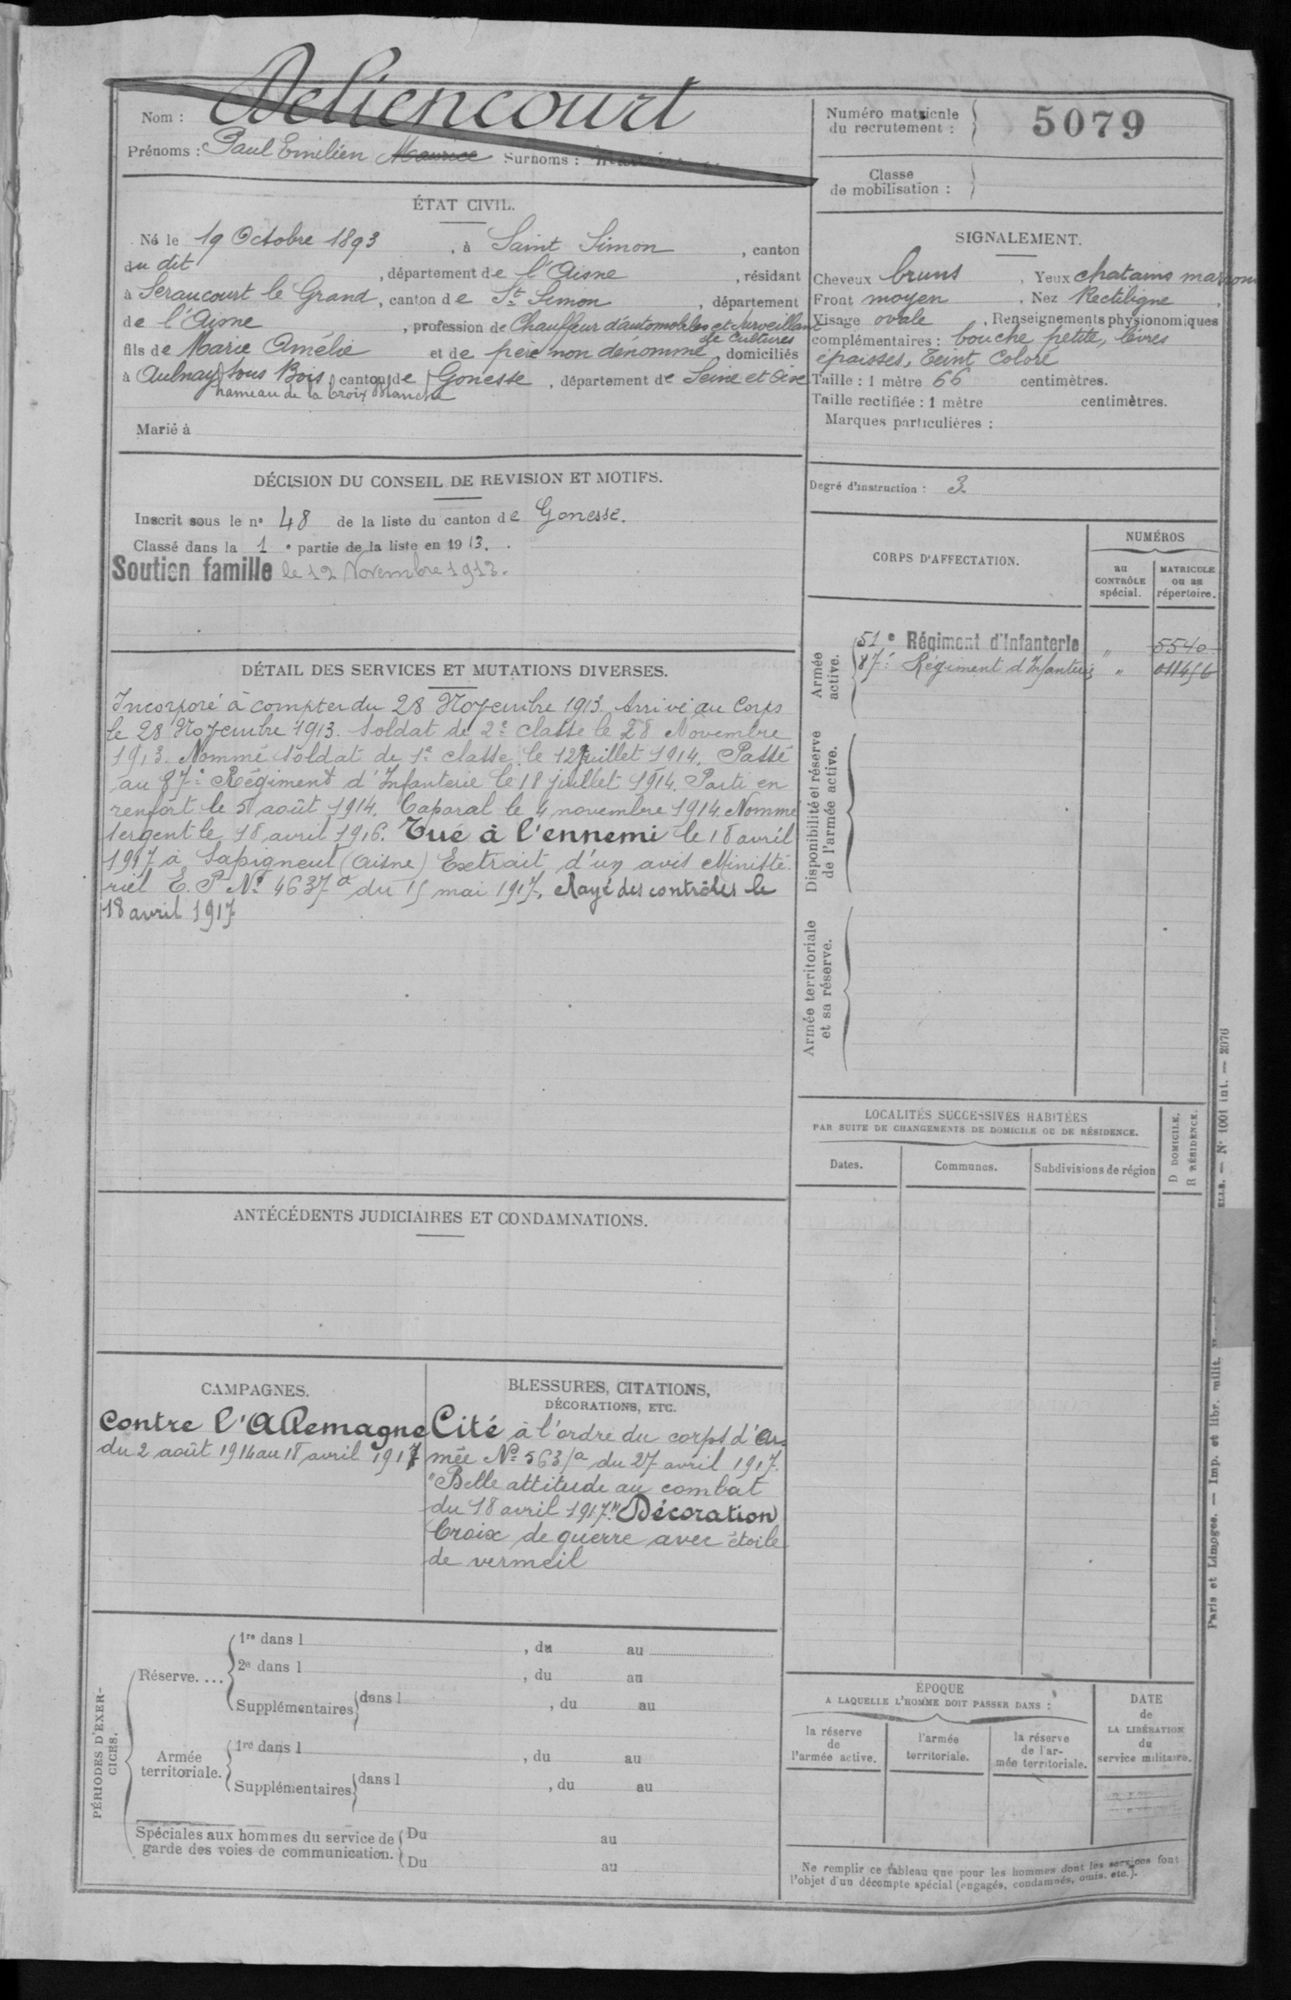 Nom : Déliencourt
Prénoms : Paul Emilien Maurice Surnoms :
Numéro matricule
du recrutement :
5079
Classe
de mobilisation :
ÉTAT CIVIL.
Né le 19 Octobre 1893, à Saint Simon, canton
du dit, département de l'Aisne, résidant
à Seraucourt le Grand, canton de St Simon, département
de l'Aisne, profession de Chauffeur d'automobiles et surveillant
de cultures
fils de Marie Amélie et de père non dénommé domiciliés
à Aulnay sous Bois, canton de Gonesse, département de Seine et Oise
hameau de la Croix Blanche
Marié à
SIGNALEMENT.
Cheveux bruns, Yeux chatains marrons
Front moyen, Nez Rectiligne,
Visage ovale, Renseignements physionomiques
complémentaires : bouche petite, lèvres
épaisses, teint coloré
Taille : 1 mètre 66 centimètres.
Taille rectifiée : 1 mètre centimètres.
Marques particulières :
Degré d'instruction : 3
DÉCISION DU CONSEIL DE REVISION ET MOTIFS.
Inscrit sous le n° 48 de la liste du canton de Gonesse.
Classé dans la 1 e partie de la liste en 1913.
Soutien famille le 12 Novembre 1913.
DÉTAIL DES SERVICES ET MUTATIONS DIVERSES.
Incorporé à compter du 28 Novembre 1913. Arrivé au Corps
le 28 Novembre 1913. Soldat de 2e classe le 28 Novembre
1913. Nommé soldat de 1e classe le 12 juillet 1914. Passé
au 87e Régiment d'Infanterie le 18 juillet 1914. Parti en
renfort le 5 août 1914. Caporal le 4 novembre 1914. Nommé
sergent le 18 avril 1916. Tué à l'ennemi le 18 avril
1917 à Sapigneul (Aisne) Extrait d'un avis Ministé-
riel E. P. No 4637a du 15 mai 1917. Rayé des contrôles le
18 avril 1917
CORPS D'AFFECTATION.
NUMÉROS
au
CONTRÔLE
spécial.
MATRICULE
ou au
répertoire.
Armée
active.
51e Régiment d'Infanterie " 5540
87e Régiment d'Infanterie " 011456
Disponibilité et réserve
de l'armée active.
Armée territoriale
et sa réserve.
LOCALITÉS SUCCESSIVES HABITÉES
PAR SUITE DE CHANGEMENTS DE DOMICILE OU DE RÉSIDENCE.
Dates.
Communes.
Subdivisions de région
D DOMICILE.
R RÉSIDENCE.
ANTÉCÉDENTS JUDICIAIRES ET CONDAMNATIONS.
CAMPAGNES.
Contre l'Allemagne
du 2 août 1914 au 18 avril 1917
BLESSURES, CITATIONS,
DÉCORATIONS, ETC.
Cité à l'ordre du corps d'Ar-
mée No 563/a du 27 avril 1917.
"Belle attitude au combat
du 18 avril 1917." Décoration
Croix de guerre avec étoile
de vermeil
PÉRIODES D'EXER-
CICES.
Réserve....
1re dans l , du au
2e dans l , du au
Supplémentaires dans l , du au
Armée
territoriale.
1re dans l , du au
Supplémentaires dans l , du au
Spéciales aux hommes du service de
garde des voies de communication.
Du au
Du au
ÉPOQUE
A LAQUELLE L'HOMME DOIT PASSER DANS :
la réserve
de
l'armée active.
l'armée
territoriale.
la réserve
de l'ar-
mée territoriale.
DATE
de
LA LIBÉRATION
du
service militaire.
Ne remplir ce tableau que pour les hommes dont les services font
l'objet d'un décompte spécial (engagés, condamnés, omis, etc.).
Paris et Limoges. — Imp. et libr. milit. — N° 1001 int. — 2076